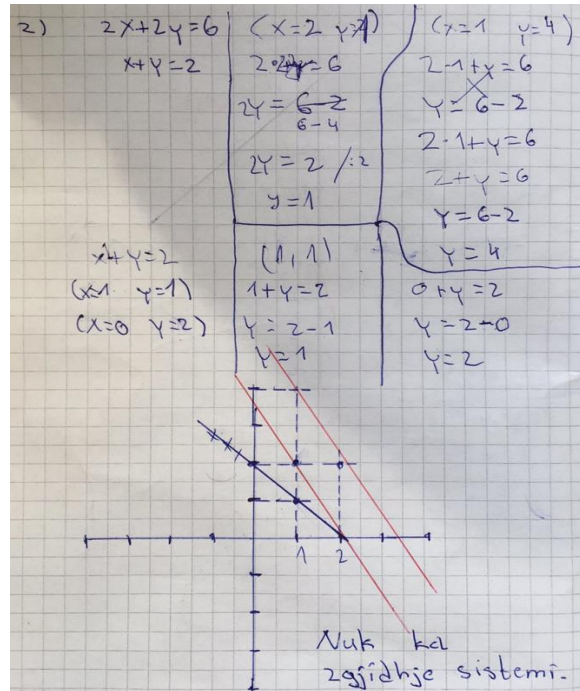 2) 2x+2y=6
x+y=2
(x=2 y=1)
= 6
2y = 6-2
6-4
2y = 2 /:2
y=1
(x=1 y=4)
2·1+y=6
y=6-2
2·1+y=6
2+y=6
y=6-2
y=4
x+y=2
(x=1 y=1)
(x=0 y=2)
(1,1)
1+y=2
y=2-1
y=1
0+y=2
y=2-0
y=2
1 2
Nuk ka
zgjidhje sistemi.